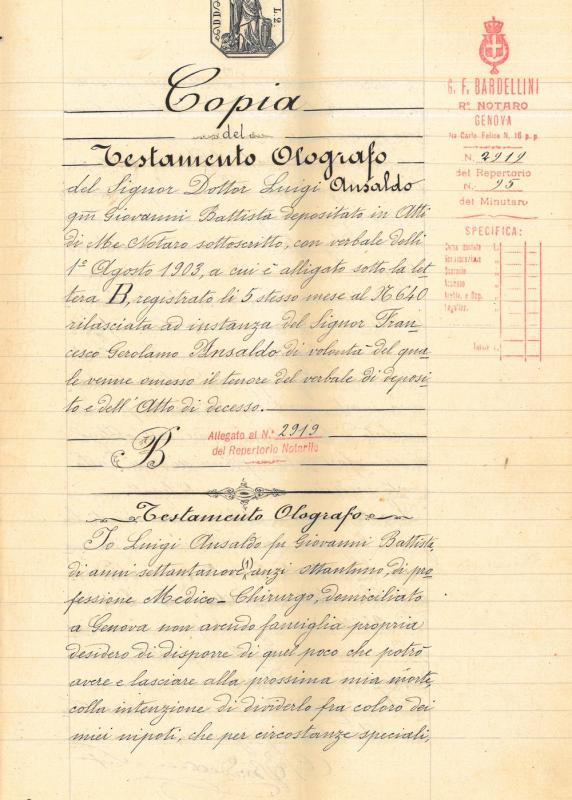 L. 2.
Copia
del
Testamento Olografo
del Signor Dottor Luigi Ansaldo
qm Giovanni Battista depositato in Atti
di Me Notaro sottoscritto, con verbale delli
1º Agosto 1903, a cui è alligato sotto la let-
tera B, registrato li 5 stesso mese al N 640
rilasciata ad instanza del Signor Fran-
cesco Gerolamo Ansaldo di volontà del qua-
le venne omesso il tenore del verbale di deposi-
to e dell'Atto di decesso.
B
Allegato al N.º 2919
del Repertorio Notarile
Testamento Olografo
Io Luigi Ansaldo fu Giovanni Battista,
di anni settantanove (1) anzi ottantuno, di pro-
fessione Medico-Chirurgo, domiciliato
a Genova non avendo famiglia propria
desidero di disporre di quel poco che potrò
avere e lasciare alla prossima mia morte,
colla intenzione di dividerlo fra coloro dei
miei nipoti, che per circostanze speciali,
G. F. BARDELLINI
Rº NOTARO
GENOVA
Via Carlo Felice N. 16 p. p.
N. 2919
del Repertorio
N. 95
del Minutaro
SPECIFICA: